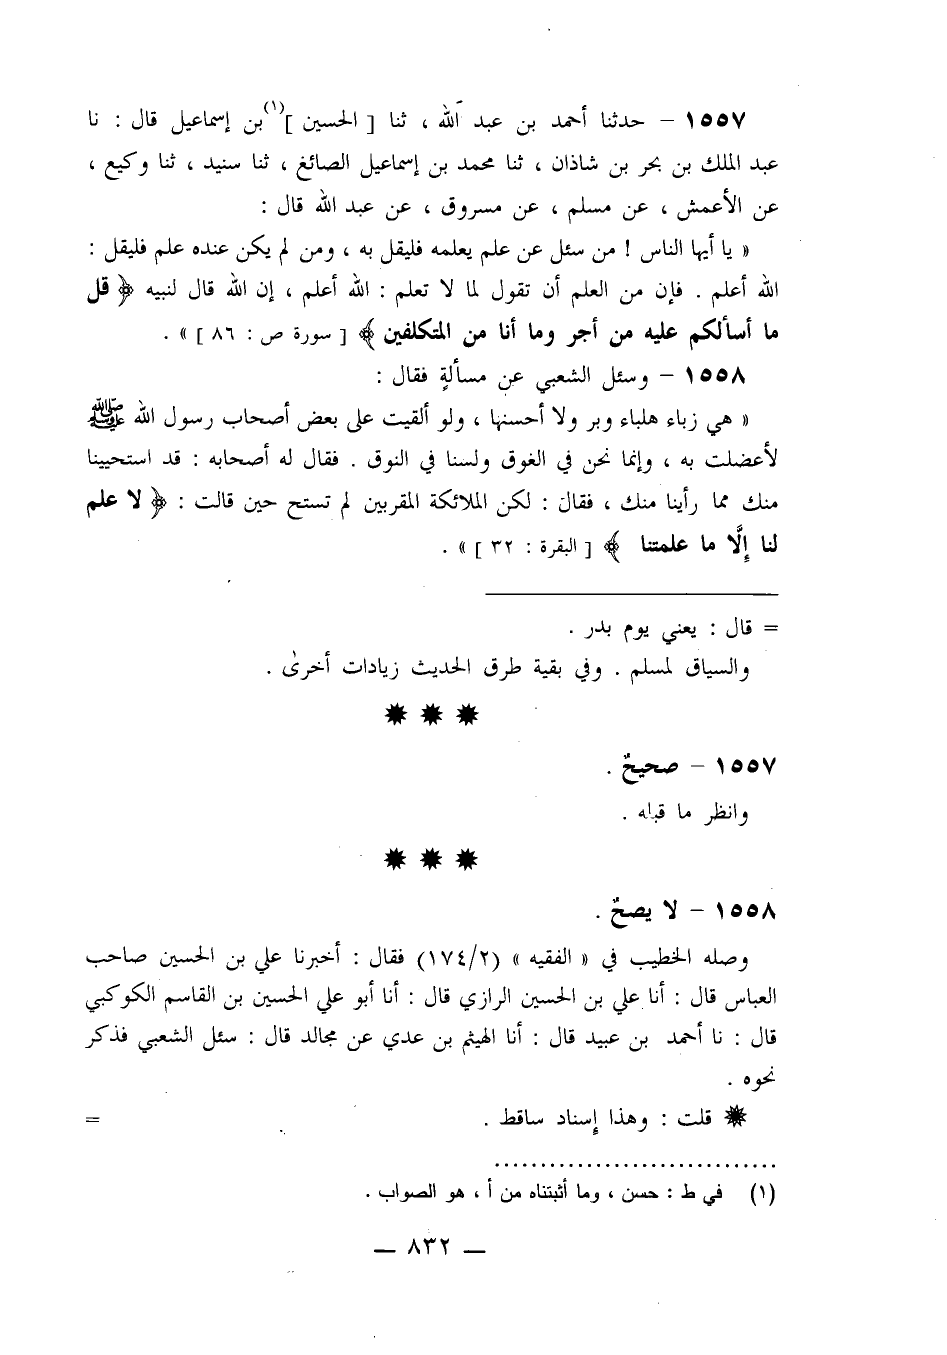 ١٥٥٧ – حدثنا أحمد بن عبد الله ، ثنا [ الحسين ](١) بن إسماعيل قال : نا
عبد الملك بن بحر بن شاذان ، ثنا محمد بن إسماعيل الصائغ ، ثنا سنيد ، ثنا وكيع ،
عن الأعمش ، عن مسلم ، عن مسروق ، عن عبد الله قال :
« يا أيها الناس ! من سئل عن علم يعلمه فليقل به ، ومن لم يكن عنده علم فليقل :
الله أعلم . فإن من العلم أن تقول لما لا تعلم : الله أعلم ، إن الله قال لنبيه ﴿ قل
ما أسألكم عليه من أجر وما أنا من المتكلفين ﴾ [ سورة ص : ٨٦ ] » .
١٥٥٨ – وسئل الشعبي عن مسألةٍ فقال :
« هي زباء هلباء وبر ولا أحسنها ، ولو ألقيت على بعض أصحاب رسول الله ﷺ
لأعضلت به ، وإنما نحن في الغوق ولسنا في النوق . فقال له أصحابه : قد استحيينا
منك مما رأينا منك ، فقال : لكن الملائكة المقربين لم تستح حين قالت : ﴿ لا علم
لنا إلَّا ما علمتنا ﴾ [ البقرة : ٣٢ ] » .
= قال : يعني يوم بدر .
والسياق لمسلم . وفي بقية طرق الحديث زيادات أخرىٰ .
١٥٥٧ – صحيحٌ .
وانظر ما قبله .
١٥٥٨ – لا يصحُّ .
وصله الخطيب في « الفقيه » (١٧٤/٢) فقال : أخبرنا علي بن الحسين صاحب
العباس قال : أنا علي بن الحسين الرازي قال : أنا أبو علي الحسين بن القاسم الكوكبي
قال : نا أحمد بن عبيد قال : أنا الهيثم بن عدي عن مجالد قال : سئل الشعبي فذكر
نحوه .
قلت : وهذا إسناد ساقط . =
(١) في ط : حسن ، وما أثبتناه من أ ، هو الصواب .
— ٨٣٢ —